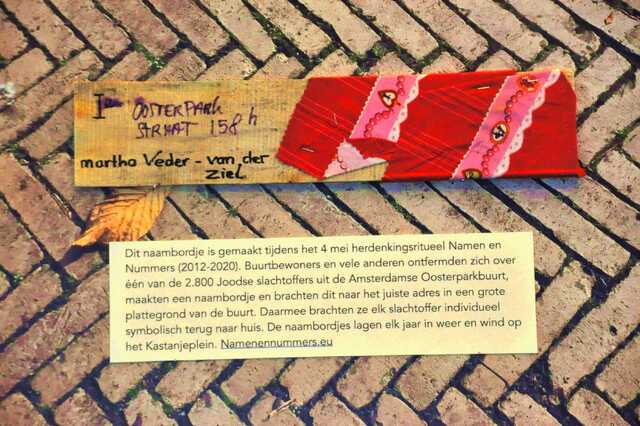 Ie OOSTERPARK
STRAAT 158 h
martha Veder - van der
ZIEL
Dit naambordje is gemaakt tijdens het 4 mei herdenkingsritueel Namen en
Nummers (2012-2020). Buurtbewoners en vele anderen ontfermden zich over
één van de 2.800 Joodse slachtoffers uit de Amsterdamse Oosterparkbuurt,
maakten een naambordje en brachten dit naar het juiste adres in een grote
plattegrond van de buurt. Daarmee brachten ze elk slachtoffer individueel
symbolisch terug naar huis. De naambordjes lagen elk jaar in weer en wind op
het Kastanjeplein. Namenennummers.eu